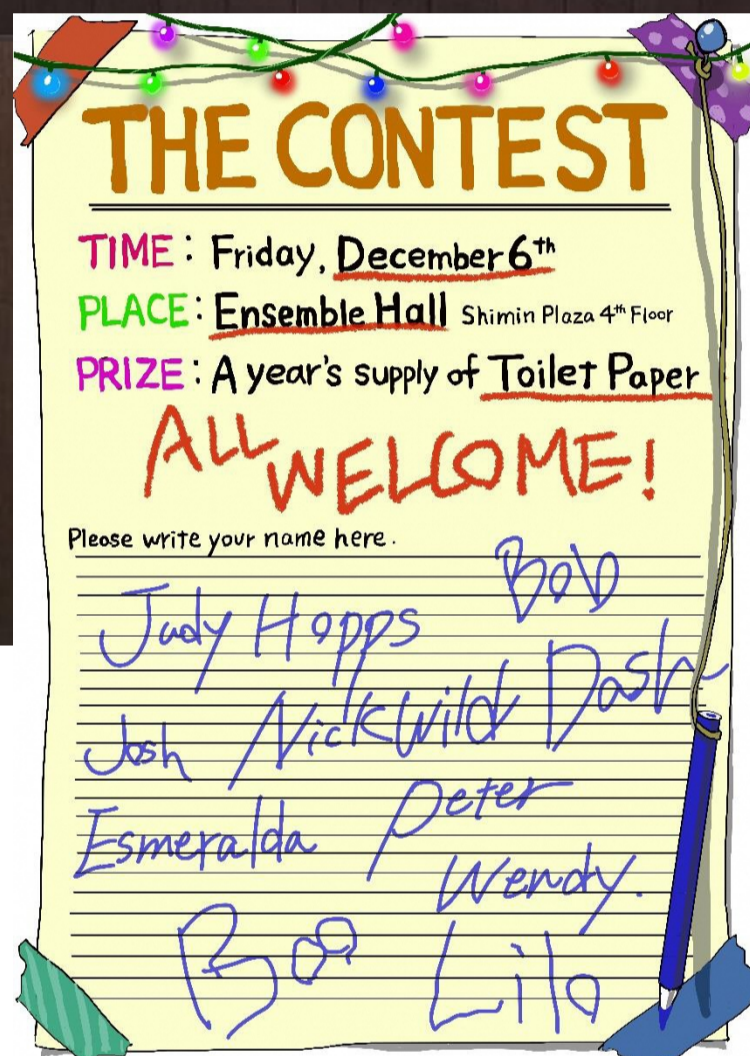 THE CONTEST
TIME: Friday, December 6th
PLACE: Ensemble Hall Shimin Plaza 4th Floor
PRIZE: A year's supply of Toilet Paper
ALL WELCOME!
Please write your name here.
Bob
Judy Hopps
Dash
Nick Wild
Josh
Peter
Esmeralda
Wendy.
Boo
Lilo